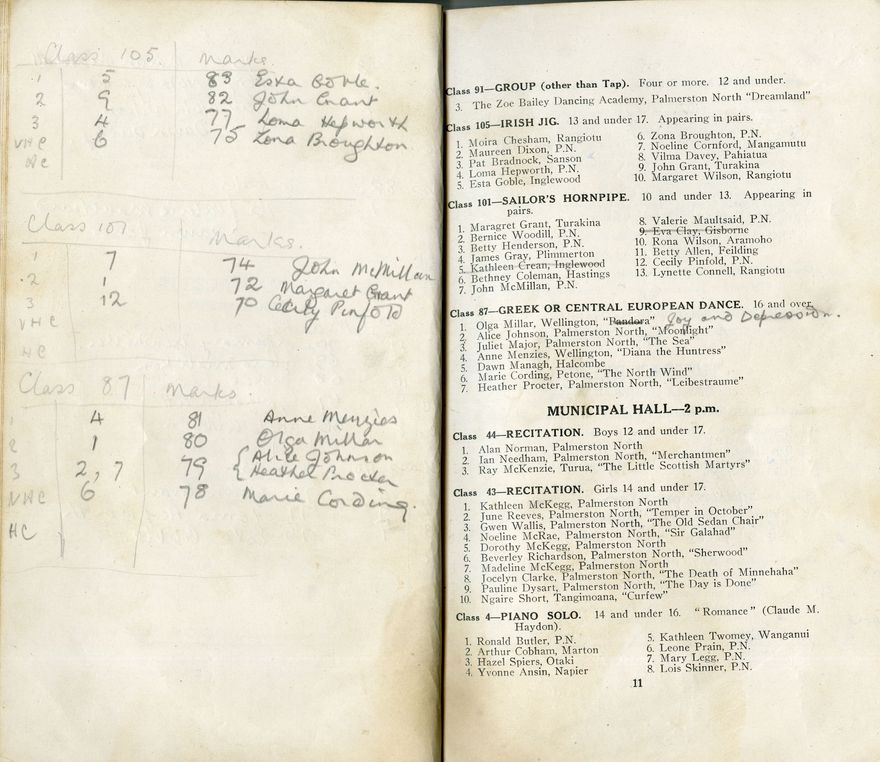 Class 105. Marks.
1 5 83 Esta Goble.
2 9 82 John Grant
3 4 77 Loma Hepworth
VHC 6 75 Zona Broughton
HC
Class 101 Marks.
1 7 74 John McMillan
2 1 72 Margaret Grant
3 12 70 Cecily Pinfold
VHC
HC
Class 87 Marks.
1 4 81 Anne Menzies
2 1 80 Olga Millar
3 2, 7 79 { Alice Johnson
Heather Procter
VHC 6 78 Marie Cording.
HC
Class 91—GROUP (other than Tap). Four or more. 12 and under.
3. The Zoe Bailey Dancing Academy, Palmerston North “Dreamland”
Class 105—IRISH JIG. 13 and under 17. Appearing in pairs.
1. Moira Chesham, Rangiotu
2. Maureen Dixon, P.N.
3. Pat Bradnock, Sanson
4. Loma Hepworth, P.N.
5. Esta Goble, Inglewood
6. Zona Broughton, P.N.
7. Noeline Cornford, Mangamutu
8. Vilma Davey, Pahiatua
9. John Grant, Turakina
10. Margaret Wilson, Rangiotu
Class 101—SAILOR’S HORNPIPE. 10 and under 13. Appearing in
pairs.
1. Maragret Grant, Turakina
2. Bernice Woodill, P.N.
3. Betty Henderson, P.N.
4. James Gray, Plimmerton
5. Kathleen Crean, Inglewood
6. Bethney Coleman, Hastings
7. John McMillan, P.N.
8. Valerie Maultsaid, P.N.
9. Eva Clay, Gisborne
10. Rona Wilson, Aramoho
11. Betty Allen, Feilding
12. Cecily Pinfold, P.N.
13. Lynette Connell, Rangiotu
Class 87—GREEK OR CENTRAL EUROPEAN DANCE. 16 and over.
1. Olga Millar, Wellington, “Pandora” Joy and Depression.
2. Alice Johnson, Palmerston North, “Moonlight”
3. Juliet Major, Palmerston North, “The Sea”
4. Anne Menzies, Wellington, “Diana the Huntress”
5. Dawn Managh, Halcombe
6. Marie Cording, Petone, “The North Wind”
7. Heather Procter, Palmerston North, “Leibestraume”
MUNICIPAL HALL—2 p.m.
Class 44—RECITATION. Boys 12 and under 17.
1. Alan Norman, Palmerston North
2. Ian Needham, Palmerston North, “Merchantmen”
3. Ray McKenzie, Turua, “The Little Scottish Martyrs”
Class 43—RECITATION. Girls 14 and under 17.
1. Kathleen McKegg, Palmerston North
2. June Reeves, Palmerston North, “Temper in October”
3. Gwen Wallis, Palmerston North, “The Old Sedan Chair”
4. Noeline McRae, Palmerston North, “Sir Galahad”
5. Dorothy McKegg, Palmerston North
6. Beverley Richardson, Palmerston North, “Sherwood”
7. Madeline McKegg, Palmerston North
8. Jocelyn Clarke, Palmerston North, “The Death of Minnehaha”
9. Pauline Dysart, Palmerston North, “The Day is Done”
10. Ngaire Short, Tangimoana, “Curfew”
Class 4—PIANO SOLO. 14 and under 16. “Romance” (Claude M.
Haydon).
1. Ronald Butler, P.N.
2. Arthur Cobham, Marton
3. Hazel Spiers, Otaki
4. Yvonne Ansin, Napier
5. Kathleen Twomey, Wanganui
6. Leone Prain, P.N.
7. Mary Legg, P.N.
8. Lois Skinner, P.N.
11